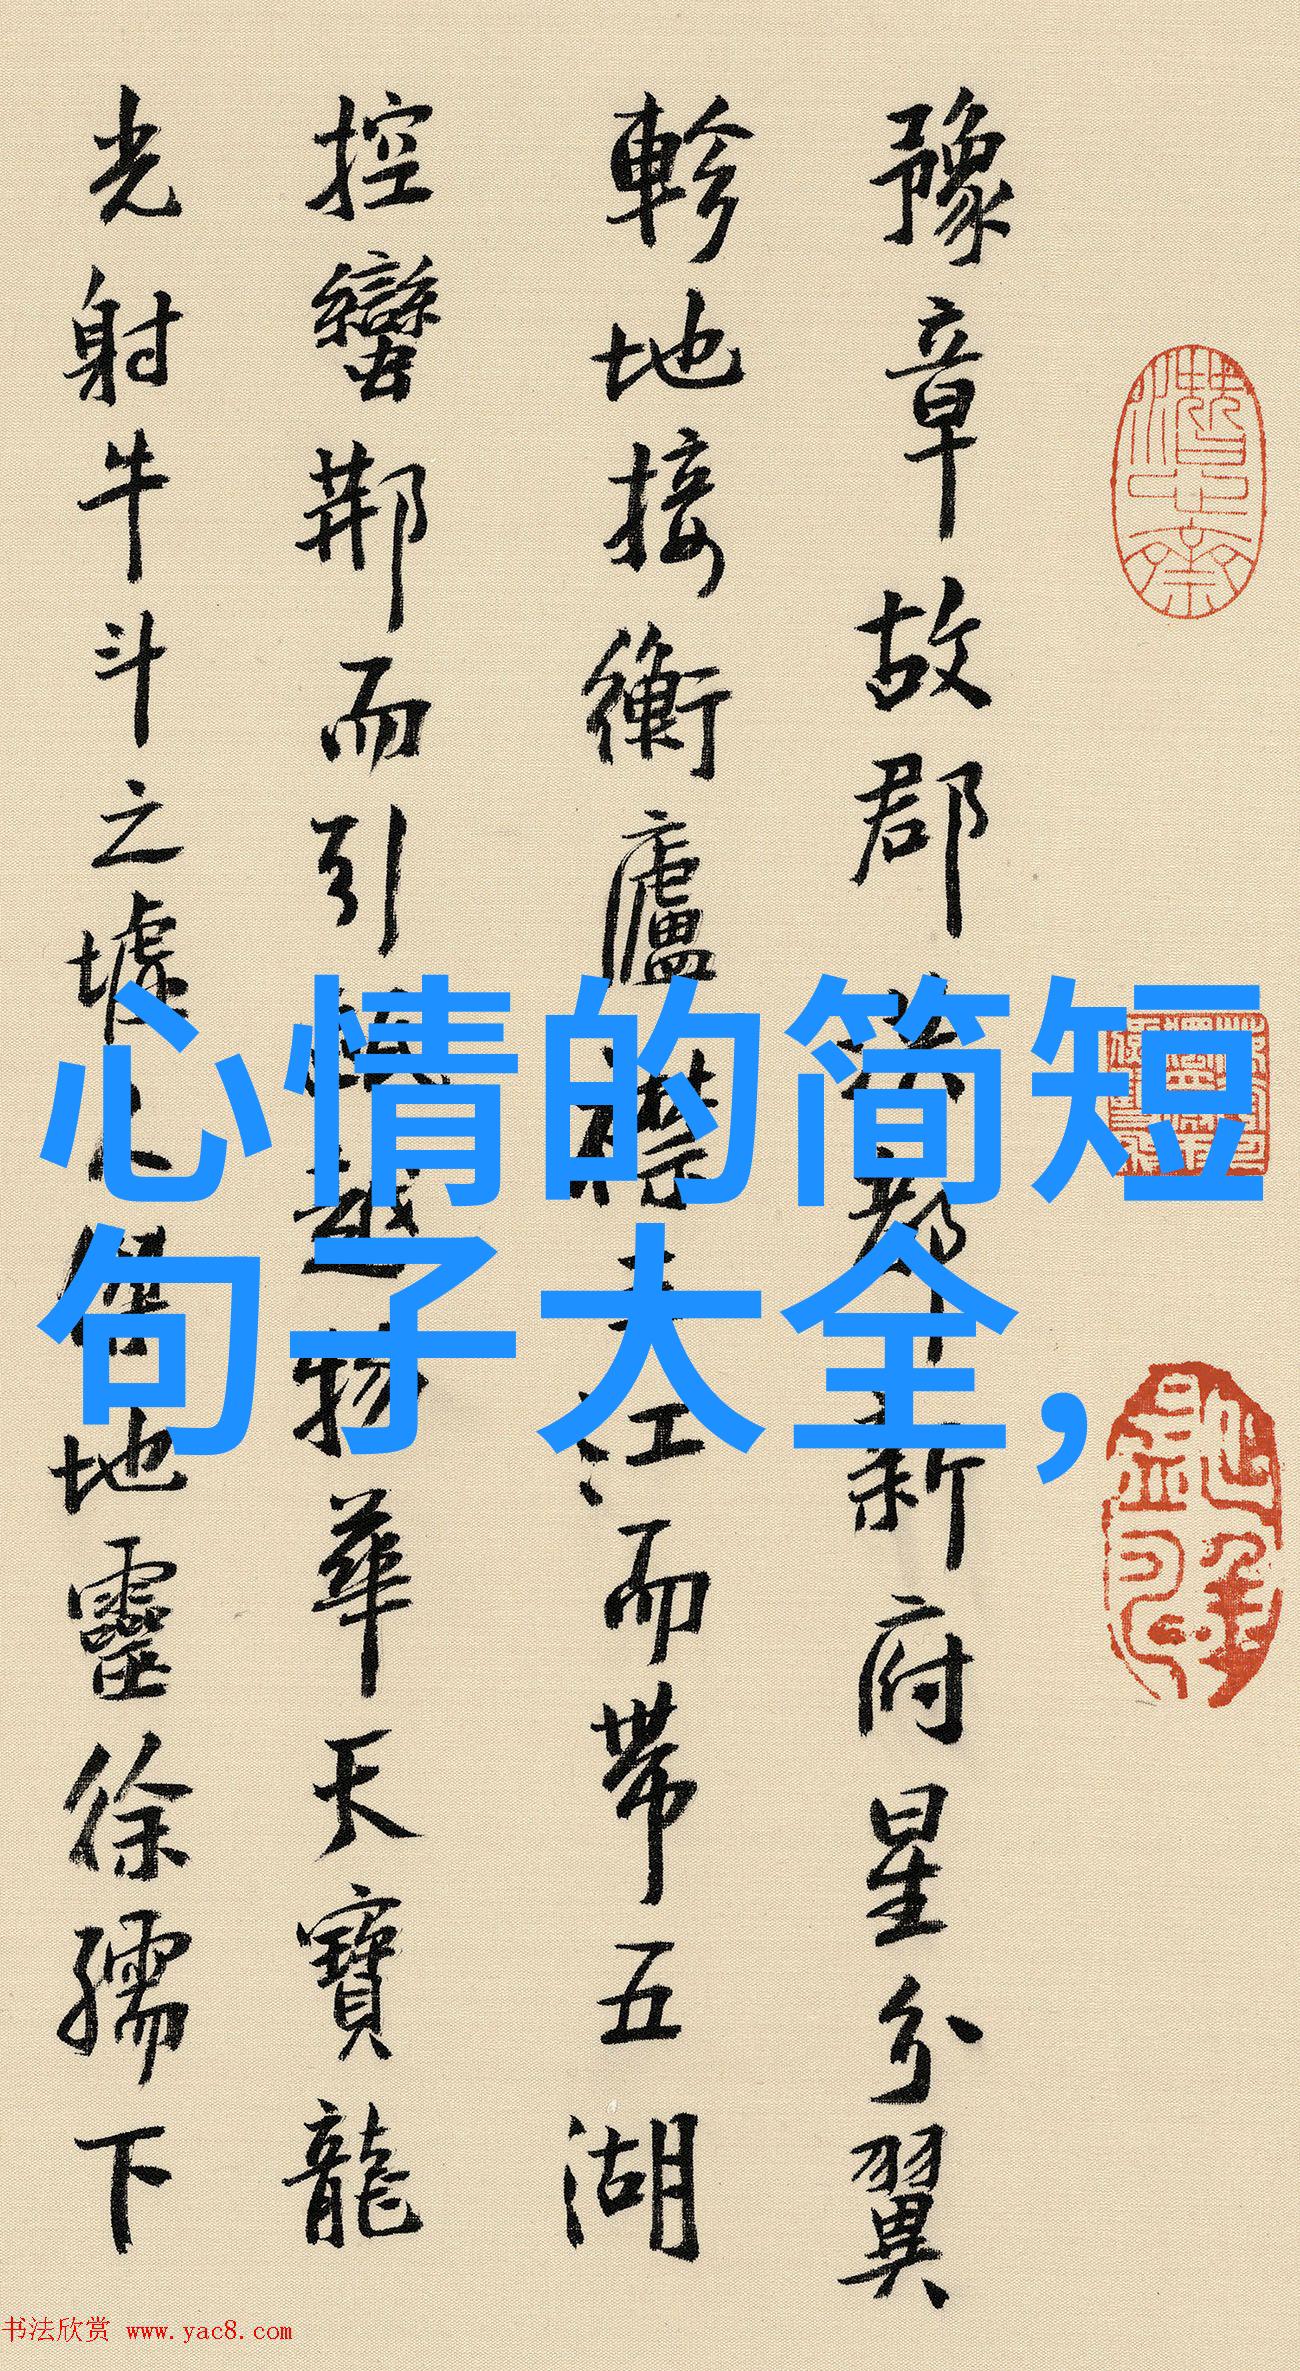 豫章故郡洪都新府星分翼
軫地接衡廬襟三江而帶五湖
控蠻荆而引甌越物華天寶龍
光射牛斗之墟人傑地靈徐孺下
心情的简短
句子大全,
书法欣赏 www.yac8.com